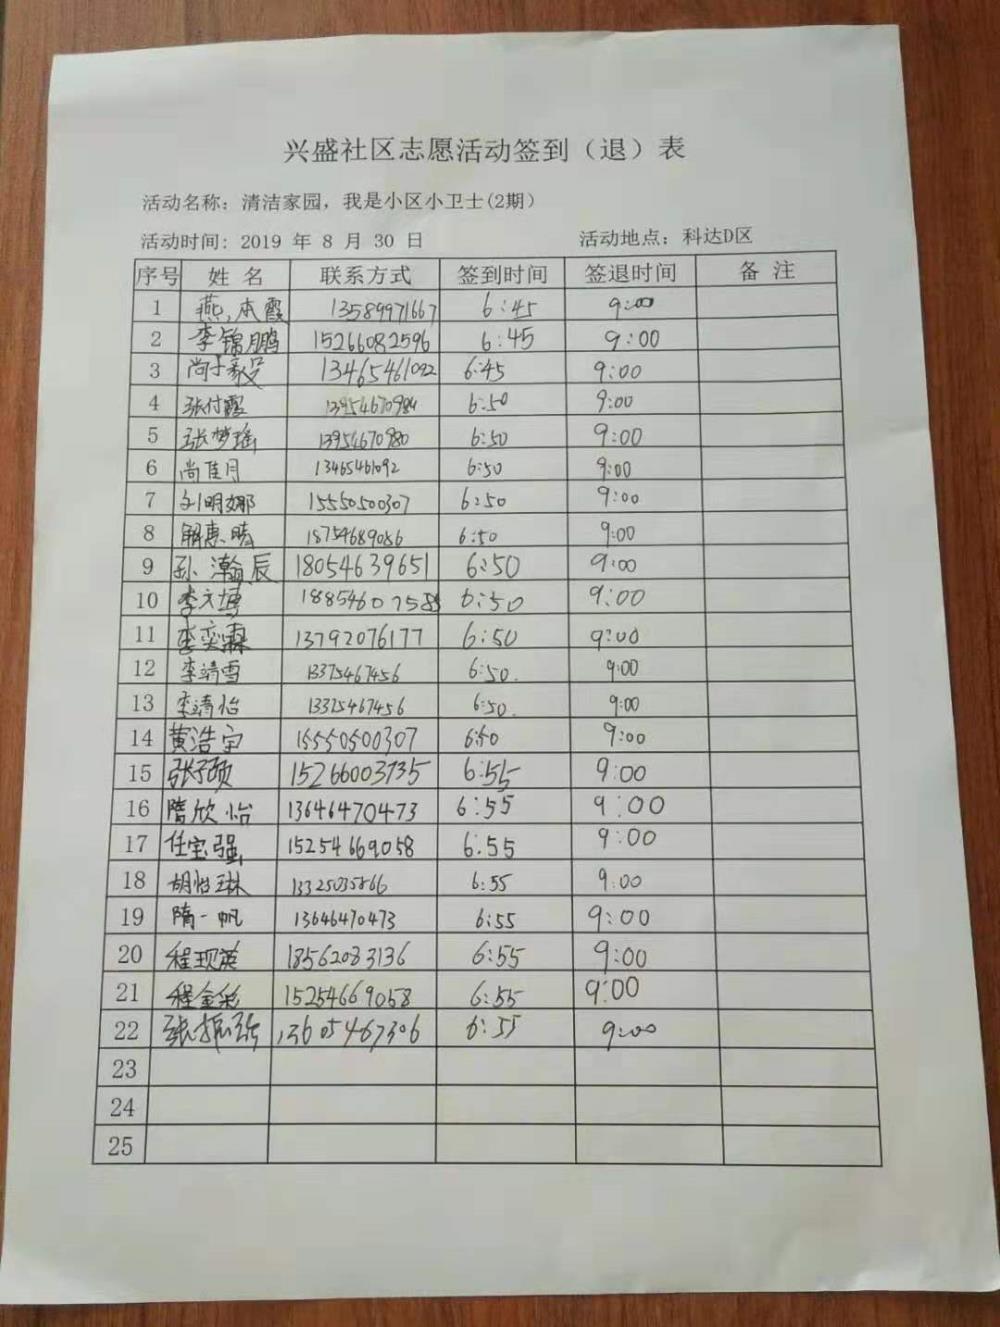 兴盛社区志愿活动签到（退）表
活动名称：清洁家园，我是小区小卫士(2期）
活动时间: 2019 年 8 月 30 日 活动地点：科达D区
序号 姓 名 联系方式 签到时间 签退时间 备 注
1 燕本霞 13589971667 6:45 9:00
2 李锦鹏 15266082596 6:45 9:00
3 尚子毅 13465461092 6:45 9:00
4 张付霞 13954670980 6:50 9:00
5 张梦瑶 13954670980 6:50 9:00
6 尚佳月 13465461092 6:50 9:00
7 刘明娜 15550500307 6:50 9:00
8 解惠晴 18754689086 6:50 9:00
9 孙瀚辰 18054639651 6:50 9:00
10 李文博 18854607585 6:50 9:00
11 李奕霖 13792076177 6:50 9:00
12 李靖雪 13375467456 6:50. 9:00
13 李靖怡 13375467456 6:50. 9:00
14 黄浩宇 15550500307 6:50 9:00
15 张子硕 15266003735 6:55 9:00
16 隋欣怡 13646470473 6:55 9:00
17 任宝强 15254669058 6:55 9:00
18 胡怡琳 13325035866 6:55 9:00
19 隋一帆 13646470473 6:55 9:00
20 程现英 18562083136 6:55 9:00
21 程金彩 15254669058 6:55 9:00
22 张振 13605467306 6:55 9:00
23
24
25